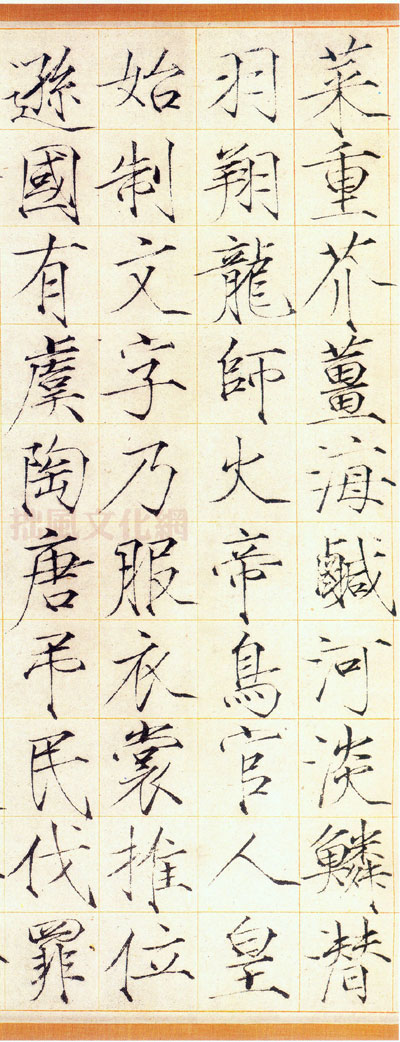 菜重芥薑海鹹河淡鱗潜
羽翔龍師火帝鳥官人皇
始制文字乃服衣裳推位
遜國有虞陶唐吊民伐罪
拙風文化網